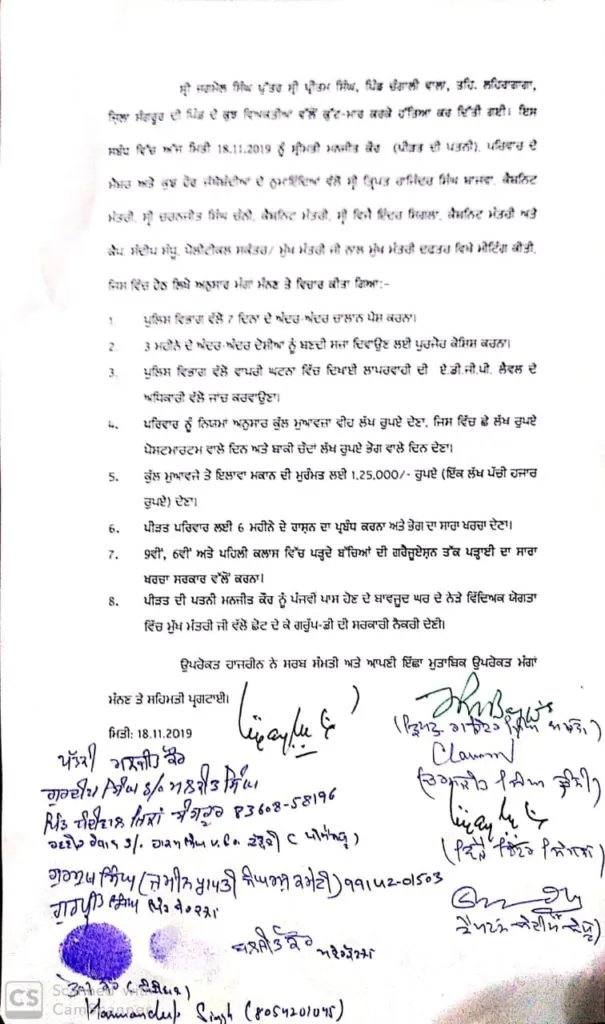 ਸ਼੍ਰੀ ਜਗਮੇਲ ਸਿੰਘ ਪੁੱਤਰ ਸ਼੍ਰੀ ਪ੍ਰੀਤਮ ਸਿੰਘ, ਪਿੰਡ ਚੰਗਾਲੀ ਵਾਲਾ, ਤਹਿ. ਲਹਿਰਾਗਾਗਾ,
ਜ਼ਿਲ੍ਹਾ ਸੰਗਰੂਰ ਦੀ ਪਿੰਡ ਦੇ ਕੁਝ ਵਿਅਕਤੀਆ ਵੱਲੋਂ ਕੁੱਟ-ਮਾਰ ਕਰਕੇ ਹੱਤਿਆ ਕਰ ਦਿੱਤੀ ਗਈ। ਇਸ
ਸਬੰਧ ਵਿੱਚ ਅੱਜ ਮਿਤੀ 18.11.2019 ਨੂੰ ਸ਼੍ਰੀਮਤੀ ਮਨਜੀਤ ਕੌਰ (ਪੀੜਤ ਦੀ ਪਤਨੀ), ਪਰਿਵਾਰ ਦੇ
ਮੈਂਬਰ ਅਤੇ ਕੁਝ ਹੋਰ ਜੱਥੇਬੰਦੀਆ ਦੇ ਨੁਮਾਇੰਦਿਆ ਵੱਲੋਂ ਸ਼੍ਰੀ ਤ੍ਰਿਪਤ ਰਾਜਿੰਦਰ ਸਿੰਘ ਬਾਜਵਾ, ਕੈਬਨਿਟ
ਮੰਤਰੀ, ਸ਼੍ਰੀ ਚਰਨਜੀਤ ਸਿੰਘ ਚੰਨੀ, ਕੈਬਨਿਟ ਮੰਤਰੀ, ਸ਼੍ਰੀ ਵਿਜੈ ਇੰਦਰ ਸਿਗਲਾ, ਕੈਬਨਿਟ ਮੰਤਰੀ ਅਤੇ
ਕੈਪ. ਸੰਦੀਪ ਸੰਧੂ, ਪੋਲੀਟੀਕਲ ਸਕੱਤਰ/ ਮੁੱਖ ਮੰਤਰੀ ਜੀ ਨਾਲ ਮੁੱਖ ਮੰਤਰੀ ਦਫਤਰ ਵਿਖੇ ਮੀਟਿੰਗ ਕੀਤੀ,
ਜਿਸ ਵਿੱਚ ਹੇਠ ਲਿਖੇ ਅਨੁਸਾਰ ਮੰਗਾ ਮੰਨਣ ਤੇ ਵਿਚਾਰ ਕੀਤਾ ਗਿਆ:-
1. ਪੁਲਿਸ ਵਿਭਾਗ ਵੱਲੋ 7 ਦਿਨਾ ਦੇ ਅੰਦਰ-ਅੰਦਰ ਚਾਲਾਨ ਪੇਸ਼ ਕਰਨਾ।
2. 3 ਮਹੀਨੇ ਦੇ ਅੰਦਰ-ਅੰਦਰ ਦੋਸ਼ੀਆ ਨੂੰ ਬਣਦੀ ਸਜਾ ਦਿਵਾਉਣ ਲਈ ਪੁਰਜੋਰ ਕੋਸ਼ਿਸ ਕਰਨਾ।
3. ਪੁਲਿਸ ਵਿਭਾਗ ਵੱਲੋ ਵਾਪਰੀ ਘਟਨਾ ਵਿੱਚ ਦਿਖਾਈ ਲਾਪਰਵਾਹੀ ਦੀ ਏ.ਡੀ.ਜੀ.ਪੀ. ਲੈਵਲ ਦੇ
ਅਧਿਕਾਰੀ ਵੱਲੋ ਜਾਂਚ ਕਰਵਾਉਣਾ।
4. ਪਰਿਵਾਰ ਨੂੰ ਨਿਯਮਾਂ ਅਨੁਸਾਰ ਕੁੱਲ ਮੁਆਵਜ਼ਾ ਵੀਹ ਲੱਖ ਰੁਪਏ ਦੇਣਾ, ਜਿਸ ਵਿੱਚ ਛੇ ਲੱਖ ਰੁਪਏ
ਪੋਸਟਮਾਰਟਮ ਵਾਲੇ ਦਿਨ ਅਤੇ ਬਾਕੀ ਚੌਦਾਂ ਲੱਖ ਰੁਪਏ ਭੋਗ ਵਾਲੇ ਦਿਨ ਦੇਣਾ।
5. ਕੁੱਲ ਮੁਆਵਜੇ ਤੋ ਇਲਾਵਾ ਮਕਾਨ ਦੀ ਮੁਰੰਮਤ ਲਈ 1,25,000/- ਰੁਪਏ (ਇੱਕ ਲੱਖ ਪੱਚੀ ਹਜਾਰ
ਰੁਪਏ) ਦੇਣਾ।
6. ਪੀੜਤ ਪਰਿਵਾਰ ਲਈ 6 ਮਹੀਨੇ ਦੇ ਰਾਸ਼ਨ ਦਾ ਪ੍ਰਬੰਧ ਕਰਨਾ ਅਤੇ ਭੋਗ ਦਾ ਸਾਰਾ ਖਰਚਾ ਦੇਣਾ।
7. 9ਵੀਂ, 6ਵੀਂ ਅਤੇ ਪਹਿਲੀ ਕਲਾਸ ਵਿੱਚ ਪੜ੍ਹਦੇ ਬੱਚਿਆਂ ਦੀ ਗਰੈਜੂਏਸ਼ਨ ਤੱਕ ਪੜ੍ਹਾਈ ਦਾ ਸਾਰਾ
ਖਰਚਾ ਸਰਕਾਰ ਵੱਲੋਂ ਕਰਨਾ।
8. ਪੀੜਤ ਦੀ ਪਤਨੀ ਮਨਜੀਤ ਕੌਰ ਨੂੰ ਪੰਜਵੀਂ ਪਾਸ ਹੋਣ ਦੇ ਬਾਵਜੂਦ ਘਰ ਦੇ ਨੇੜੇ ਵਿੱਦਿਅਕ ਯੋਗਤਾ
ਵਿੱਚ ਮੁੱਖ ਮੰਤਰੀ ਜੀ ਵੱਲੋ ਛੋਟ ਦੇ ਕੇ ਗਰੁੱਪ-ਡੀ ਦੀ ਸਰਕਾਰੀ ਨੌਕਰੀ ਦੇਣੀ।
ਉਪਰੋਕਤ ਹਾਜਰੀਨ ਨੇ ਸਰਬ ਸੰਮਤੀ ਅਤੇ ਆਪਣੀ ਇੱਛਾ ਮੁਤਾਬਿਕ ਉਪਰੋਕਤ ਮੰਗਾਂ
ਮੰਨਣ ਤੇ ਸਹਿਮਤੀ ਪ੍ਰਗਟਾਈ।
ਮਿਤੀ: 18.11.2019
(ਤ੍ਰਿਪਤ ਰਾਜਿੰਦਰ ਸਿੰਘ ਬਾਜਵਾ)
ਪਤਨੀ ਮਨਜੀਤ ਕੌਰ
(ਚਰਨਜੀਤ ਸਿੰਘ ਚੰਨੀ)
ਗੁਰਦੀਪ ਸਿੰਘ S/o ਮਲਕੀਤ ਸਿੰਘ
83608-58196
(ਵਿਜੈ ਇੰਦਰ ਸਿੰਗਲਾ)
ਗੁਰਮੁਖ ਸਿੰਘ (ਜ਼ਮੀਨ ਪ੍ਰਾਪਤੀ ਸੰਘਰਸ਼ ਕਮੇਟੀ) 99142-01503
ਗੁਰਪ੍ਰੀਤ ਸਿੰਘ ਪਿੰਡ
ਕੈਪਟਨ ਸੰਦੀਪ ਸੰਧੂ
ਮਨਜੀਤ ਕੌਰ
CS Scanned with
CamScanner
Harmandeep Singh (8054201045)